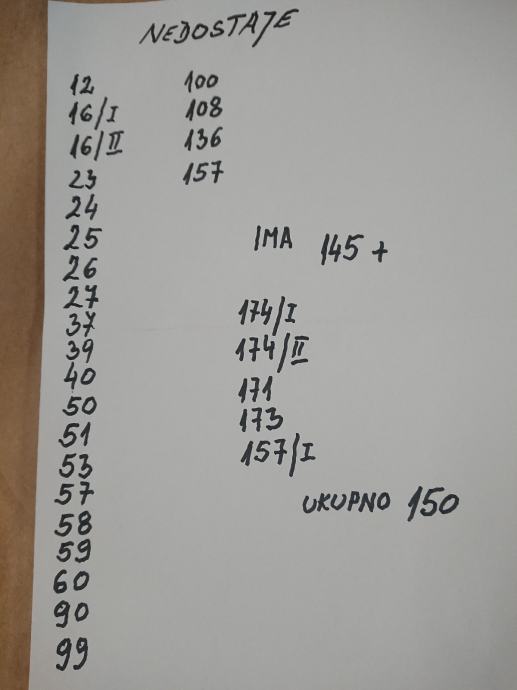 NEDOSTAJE
12
16/I
16/II
23
24
25
26
27
37
39
40
50
51
53
57
58
59
60
90
99
100
108
136
157
IMA 145 +
174/I
174/II
171
173
157/I
UKUPNO 150